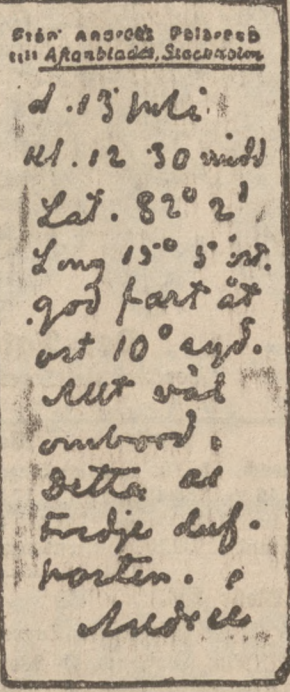 Från Andrées Polarexp.
till Aftonbladet, Stockholm
d. 13 juli
kl. 12 30 midd
Lat. 82° 2'
Long 15° 5' ost.
god fart åt
ost 10° syd.
Allt väl
ombord.
Detta är
tredje duf-
posten.
Andrée